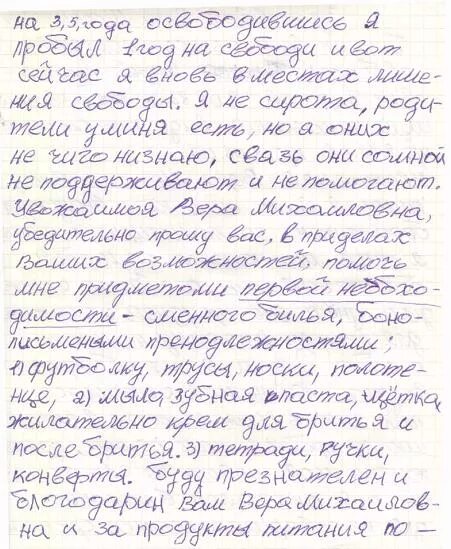 на 3,5,года освободившись Я
пробыл 1год на свободи и вот
сейчас я вновь в местах лише-
ния свободы. Я не сирота, роди-
тели у миня есть, но я оних
не чиго низнаю, свазь они сомной
не поддерживают и не помогают.
Увожаимоя Вера Михаиловна,
убедительно прошу вас, в приделах
Ваших возможностей, помочь
мне придметоми первой небохо-
димости - сменного билья, боно-
письмеными пренодлежностями;
1) футболку, трусы, носки, полоте-
нце, 2) мыло, зубная паста, щётка,
жилательно крем для бритья и
после бритья. 3) тетради, ручки,
конверты. буду презнателен и
благодарин Вам Вера Михаилов-
на и за продукты питания по-